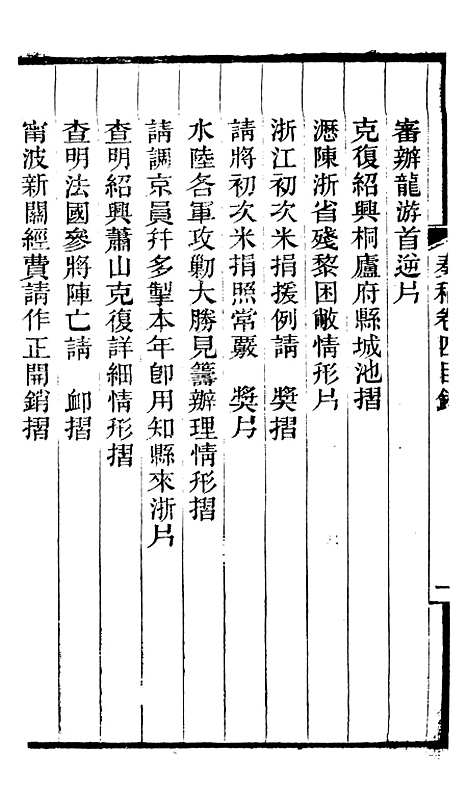 奏稿卷四目錄
一
審辦龍游首逆片
克復紹興桐廬府縣城池摺
瀝陳浙省殘黎困敝情形片
浙江初次米捐援例請　獎摺
請將初次米捐照常覈　獎片
水陸各軍攻勦大勝見籌辦理情形摺
請調京員幷多掣本年卽用知縣來浙片
查明紹興蕭山克復詳細情形摺
查明法國參將陣亡請　卹摺
甯波新關經費請作正開銷摺